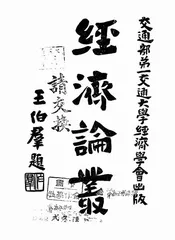 交通部第一交通大學經濟學會出版
經濟論叢
請交換
王伯羣題